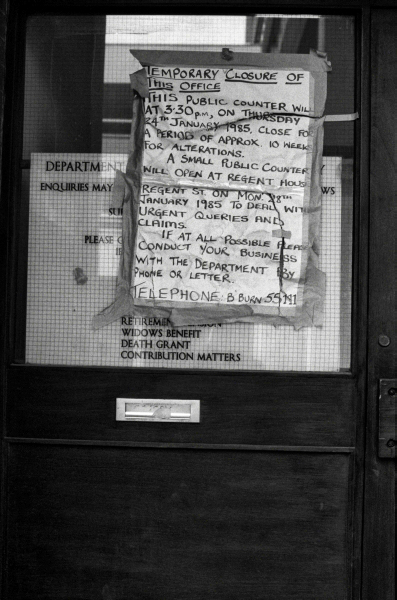 TEMPORARY CLOSURE OF
THIS OFFICE
THIS PUBLIC COUNTER WILL
AT 3·30 P.M., ON THURSDAY
24TH JANUARY 1985, CLOSE FOR
A PERIOD OF APPROX. 10 WEEKS
FOR ALTERATIONS.
A SMALL PUBLIC COUNTER
WILL OPEN AT REGENT HOUSE
REGENT ST. ON MON. 28TH
JANUARY 1985 TO DEAL WITH
URGENT QUERIES AND
CLAIMS.
IF AT ALL POSSIBLE PLEASE
CONDUCT YOUR BUSINESS
WITH THE DEPARTMENT BY
PHONE OR LETTER.
TELEPHONE B'BURN 55111
DEPARTMENT
ENQUIRIES MAY
PLEASE
RETIREMENT PENSION
WIDOWS BENEFIT
DEATH GRANT
CONTRIBUTION MATTERS